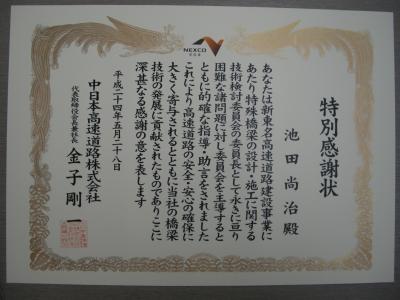 NEXCO
特別感謝状
池田尚治殿
あなたは新東名高速道路建設事業に
あたり特殊橋梁の設計・施工に関する
技術検討委員会の委員長として永きに亘り
困難な諸問題に対し委員会を主導すると
ともに的確な指導・助言をされました
これにより高速道路の安全・安心の確保に
大きく寄与されるとともに当社の橋梁
技術の発展に貢献されたものでありここに
深甚なる感謝の意を表します
平成二十四年五月二十八日
中日本高速道路株式会社
代表取締役会長兼社長 金子剛一